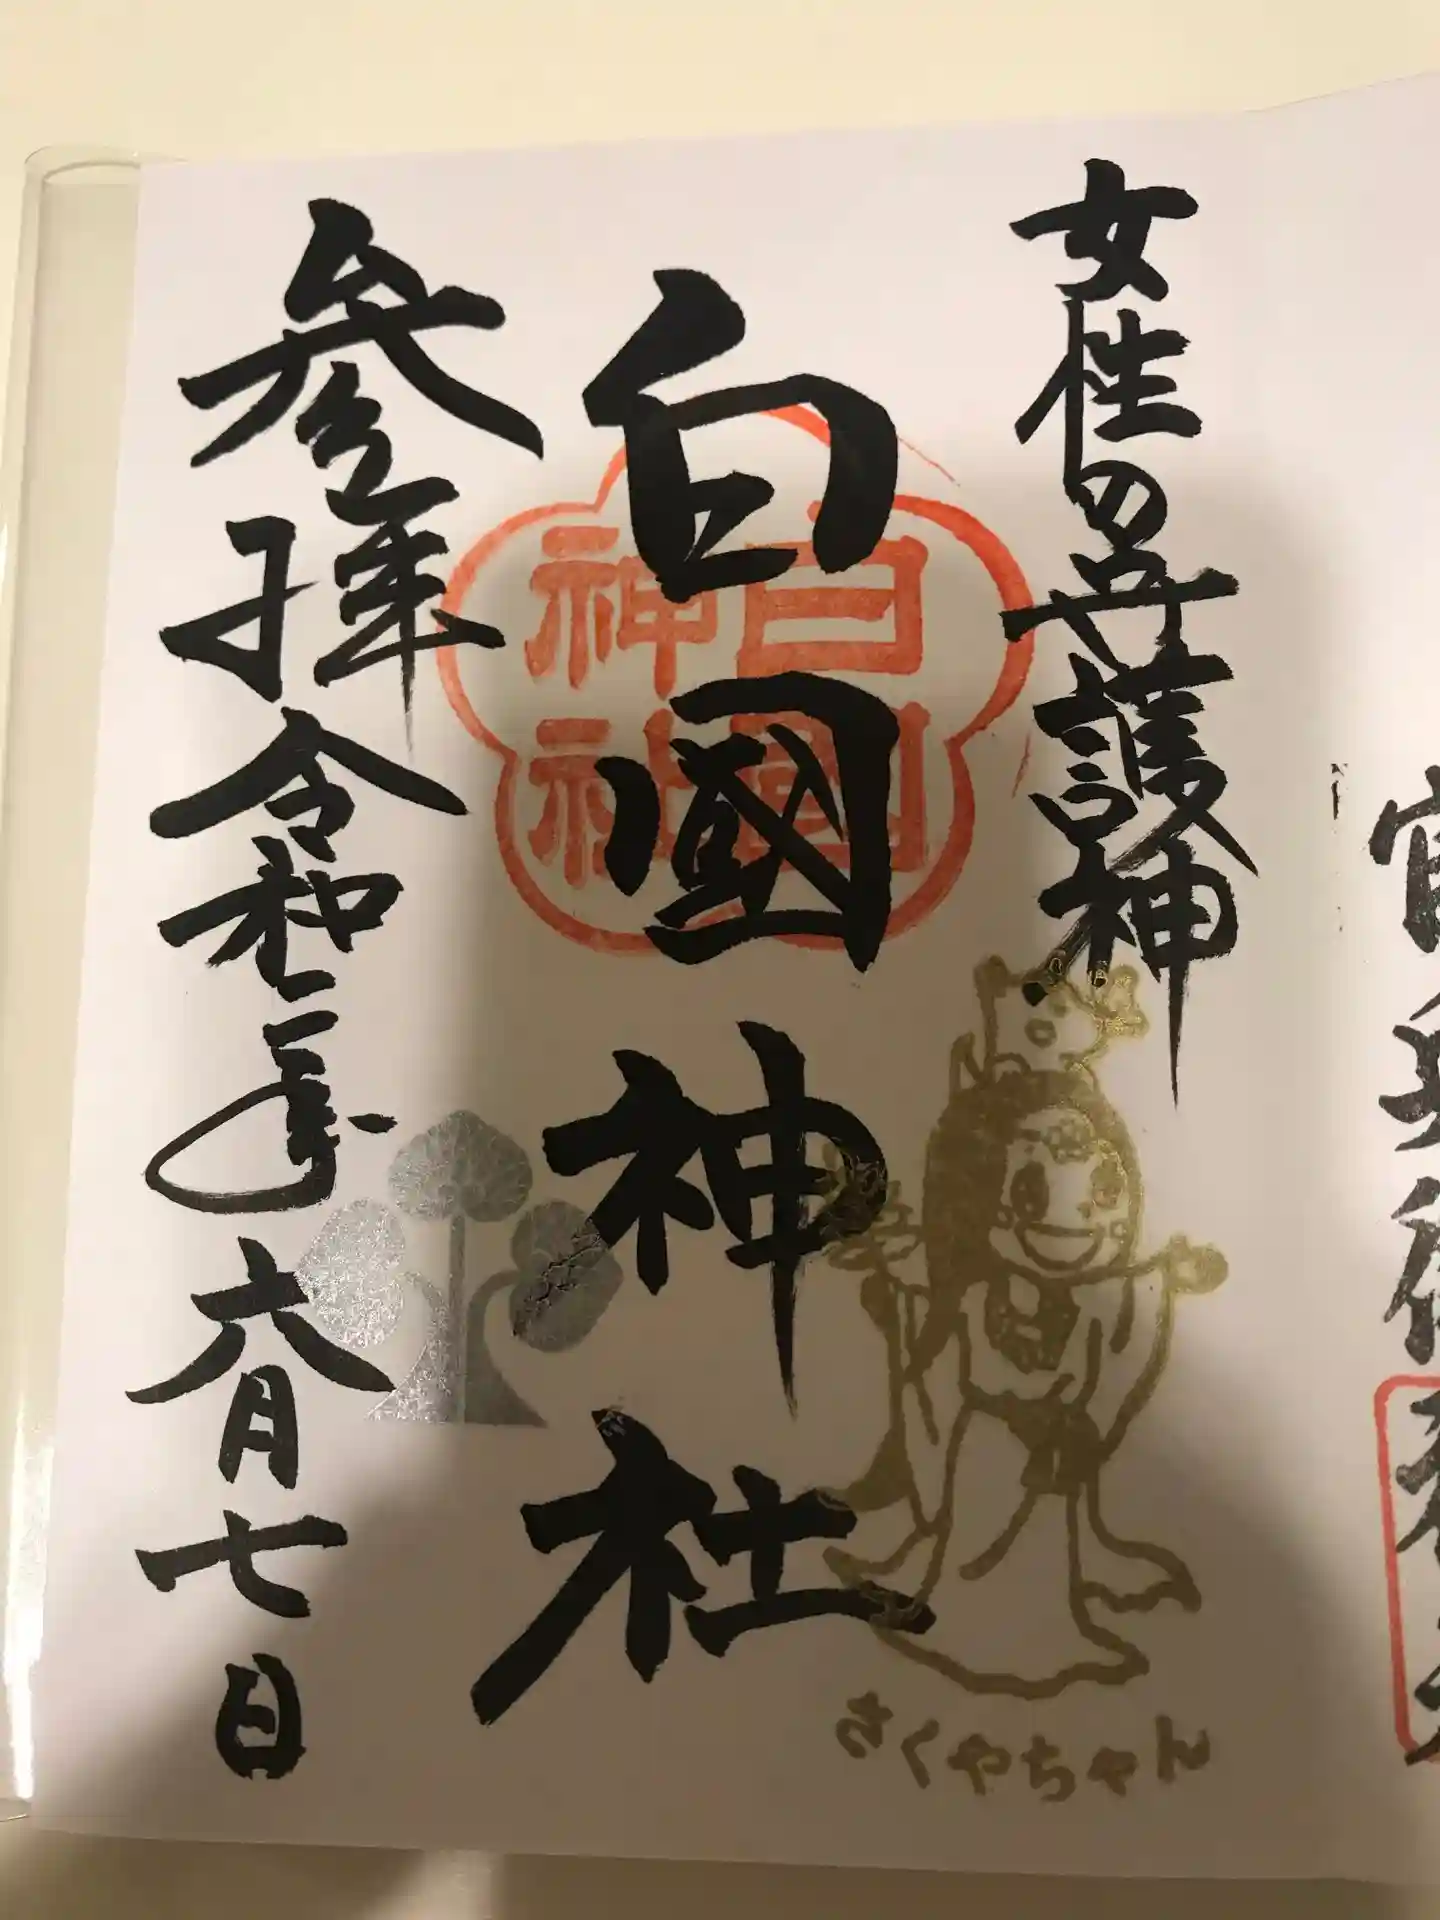 官兵衛
女性の守護神
白國神社
白國
神社
さくやちゃん
参拝令和二年六月七日